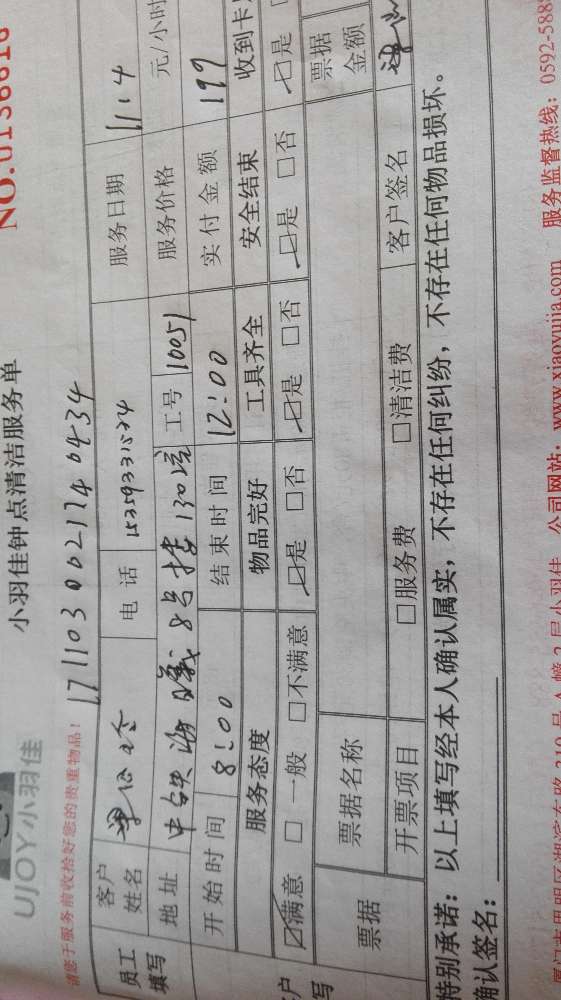 UJOY小羽佳
小羽佳钟点清洁服务单
NO.0136616
请您于服务前收拾好您的贵重物品！
1711030021740434
员工填写
客户姓名
电话 15359331524
服务日期 11.4
地址 中铁
工号 10051
服务价格 元/小时
开始时间 8:00
结束时间 12:00
实付金额 199
服务态度 物品完好 工具齐全 安全结束 收到卡
☑满意 □一般 □不满意 ☑是 □否 ☑是 □否 ☑是 □否 ☑是
票据 票据名称 票据金额
开票项目 □服务费 □清洁费 客户签名
特别承诺：以上填写经本人确认属实，不存在任何纠纷，不存在任何物品损坏。
确认签名：
公司网站：www.xiaoyujia.com 服务监督热线：0592-588